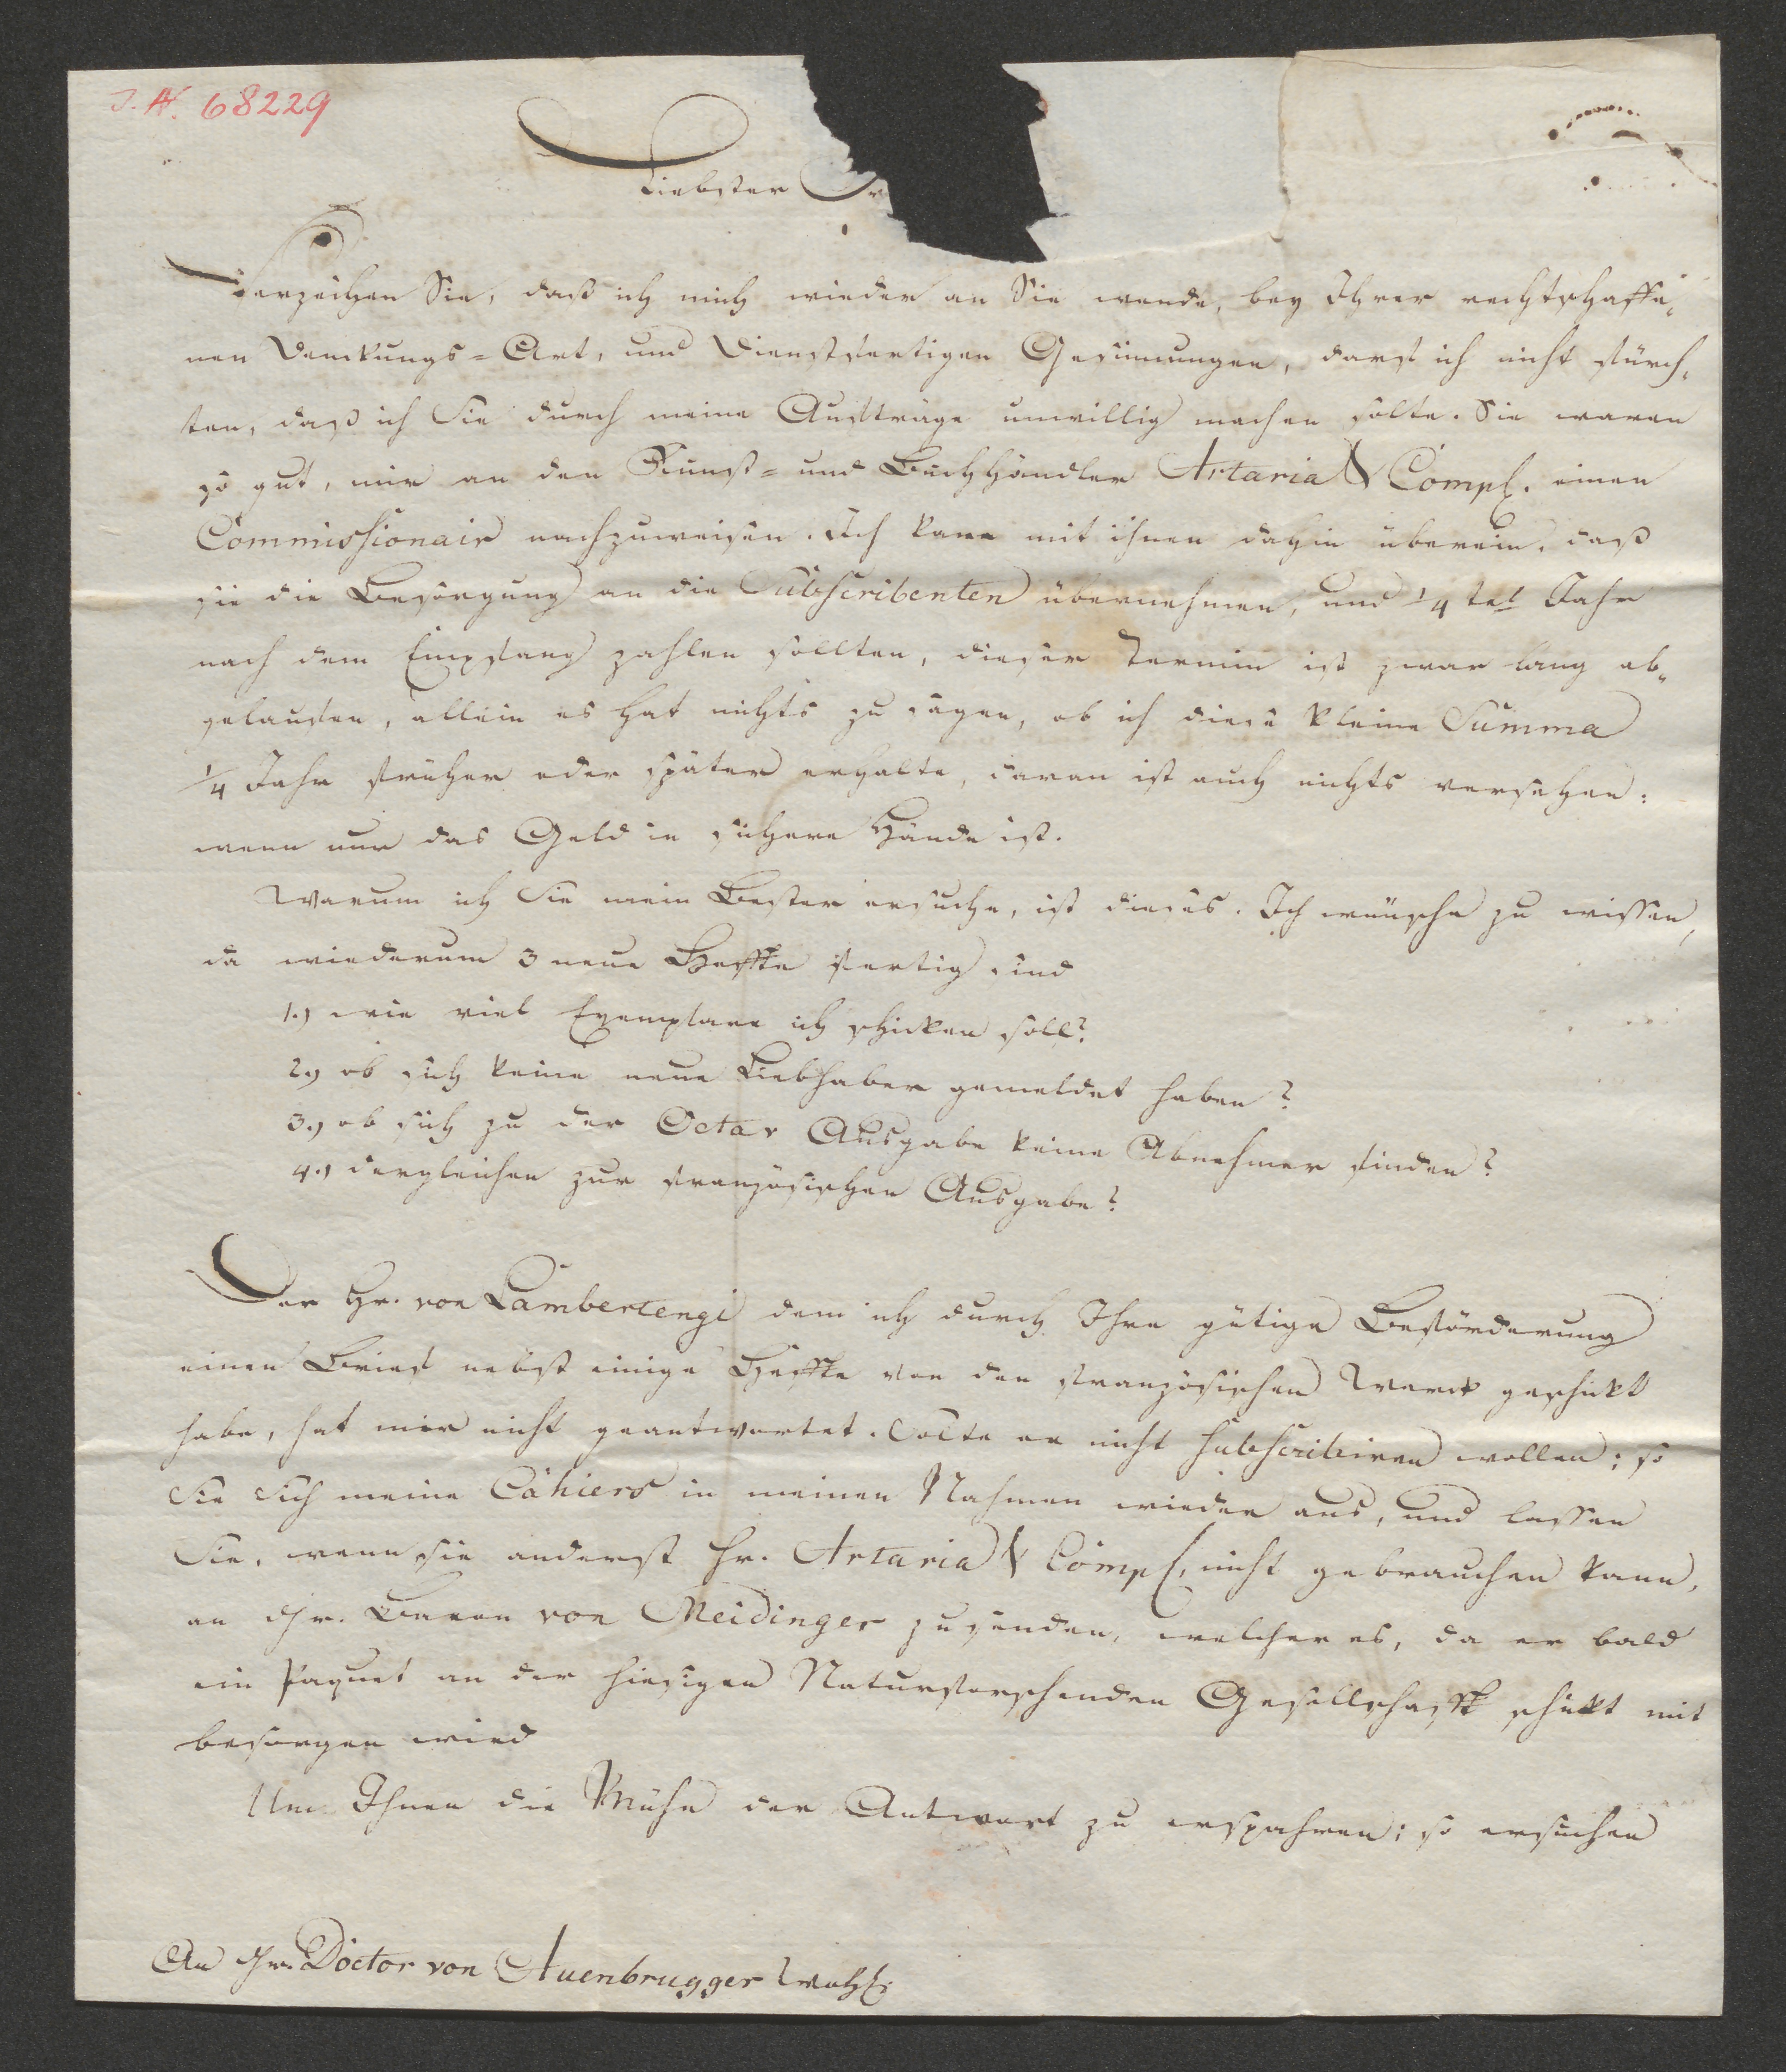 J. N. 68229
Liebster
Verzeihen Sie, daß ich mich wieder an Sie wende, bey Ihrer rechtschaffe„
nen Denckungs=Art, und Dienstfertigen Gesinnungen, darf ich nicht fürch„
ten, daß ich Sie durch meine Aufträge unwillig machen solte. Sie waren
so gut, mir an den Kunst= und Buchhändler Artaria & Comp. einen
Commissionair nachzuweisen. Ich kam mit ihnen dahin überein, daß
sie die Besorgung an die Subscribenten übernehmen, und 1/4 tel Jahr
nach dem Empfang zahlen sollten, dieser Termin ist zwar lang ab„
gelaufen, allein es hat nichts zu sagen, ob ich diese kleine Summa
1/4 Jahr früher oder später erhalte, daran ist auch nichts versehen:
wenn nur das Geld in sichere Hände ist.
Warum ich Sie mein Bester ersuche, ist dieses. Ich wünsche zu wissen,
da wiederum 3 neue Heffte fertig sind
1.) wie viel Exemplare ich schicken soll?
2.) ob sich keine neue Liebhaber gemeldet haben?
3.) ob sich zu der Octav Ausgabe keine Abnehmer finden?
4.) dergleichen zur französischen Ausgabe?
Der Hr. von Lambertengi dem ich durch Ihre gütige Beförderung
einen Brief nebst einige Heffte von den französischen Werck geschickt
habe, hat mir nicht geantwortet. Solte er nicht subscribiren wollen; so
Sie Sich meine Cahiers in meinen Nahmen wieder aus, und lassen
Sie, wenn sie anderst Hr. Artaria & Comp. nicht gebrauchen kann,
an Hr. Baron von Meidinger zusenden, welcher es, da er bald
ein Paquet an der hiesigen Naturforschenden Gesellschafft schickt mit
besorgen wird
Um Ihnen die Mühe der Antwort zu erspahren; so ersuchen
An Hrn. Doctor von Auenbrugger